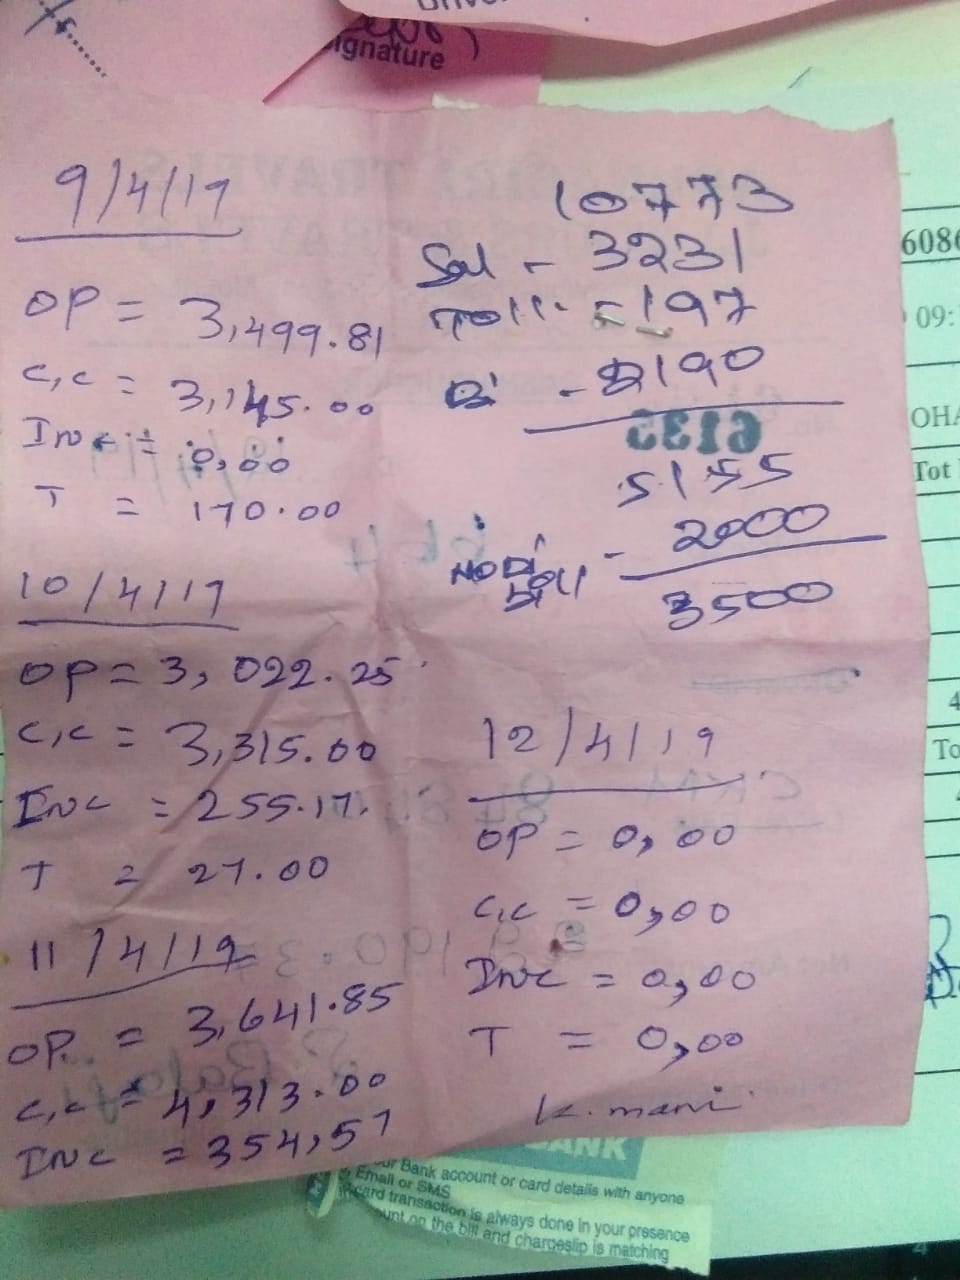 ignature
9/4/19
OP = 3,499.81
C,C = 3,145.00
Inc = 0,00
T = 170.00
10/4/19
OP = 3,022.25
C,C = 3,315.00
Inc = 255.17
T = 27.00
11/4/19
OP = 3,641.85
C,C = 4,313.00
Inc = 354,57
10773
Sal - 3231
Toll - 197
Di - 2190
6135
5155
2000
3500
12/4/19
OP = 0,00
C,C = 0,00
Inc = 0,00
T = 0,00
K. mani
6086
09:
OHA
Tot
4
To
BANK
ur Bank account or card details with anyone
Email or SMS
card transaction is always done in your presence
ount on the bill and chargeslip is matching